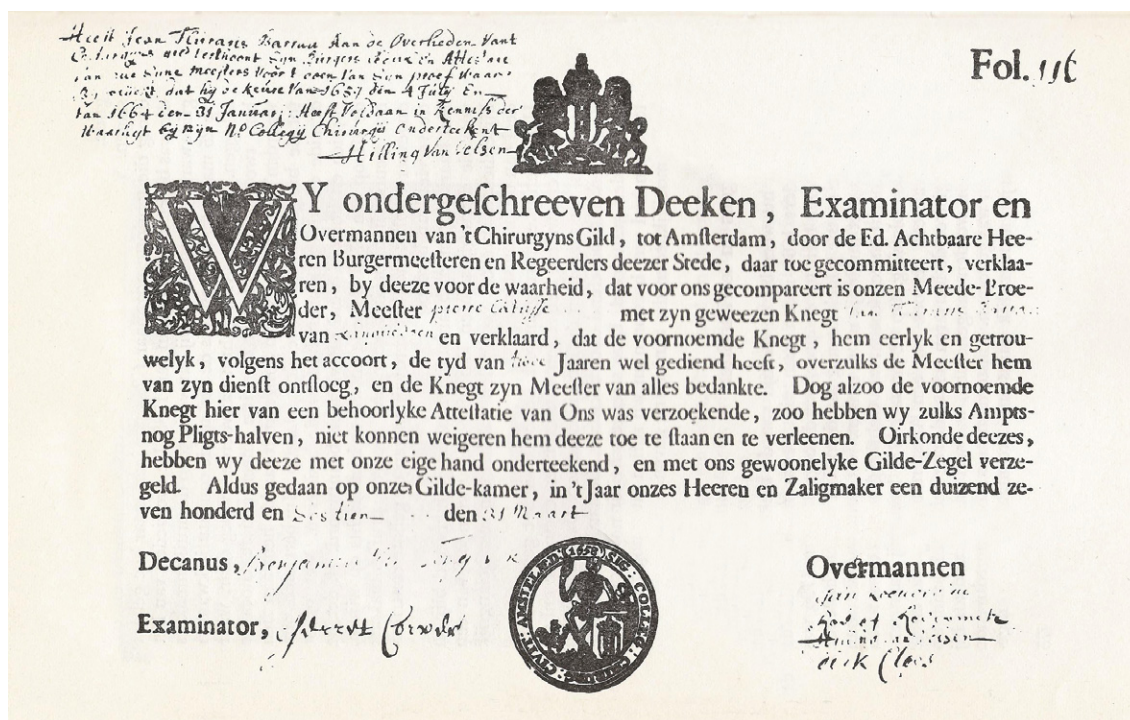 Heeft Jean
Overheden Vant
Syn Burgers
Meesters Voor't Syn proef
dat hy de keure Van 1657 den 4 July En
Van 1664 den 31 Januarij: Heeft Voldaan in Kennisse der
Waarheyt bij Mijn Collegij Chirurgij Onderteekent
Fol. 116
WY ondergeſchreeven Deeken, Examinator en
Overmannen van 't Chirurgyns Gild, tot Amſterdam, door de Ed. Achtbaare Hee-
ren Burgermeeſteren en Regeerders deezer Stede, daar toe gecommitteert, verklaa-
ren, by deeze voor de waarheid, dat voor ons gecompareert is onzen Meede-Broe-
der, Meeſter pierre met zyn geweezen Knegt
van en verklaard, dat de voornoemde Knegt, hem eerlyk en getrou-
welyk, volgens het accoort, de tyd van Jaaren wel gediend heeft, overzulks de Meeſter hem
van zyn dienſt ontſloeg, en de Knegt zyn Meeſter van alles bedankte. Dog alzoo de voornoemde
Knegt hier van een behoorlyke Atteſtatie van Ons was verzoekende, zoo hebben wy zulks Ampts-
nog Pligts-halven, niet konnen weigeren hem deeze toe te ſtaan en te verleenen. Oirkonde deezes,
hebben wy deeze met onze eige hand onderteekend, en met ons gewoonelyke Gilde-Zegel verze-
geld. Aldus gedaan op onze Gilde-kamer, in 't Jaar onzes Heeren en Zaligmaker een duizend ze-
ven honderd en Sestien den 31 Maart
Decanus, Benjamin
SIG: COLLEG: CHIRURG: CIVIT: AMSTELED: 1658
Overmannen
Examinator,